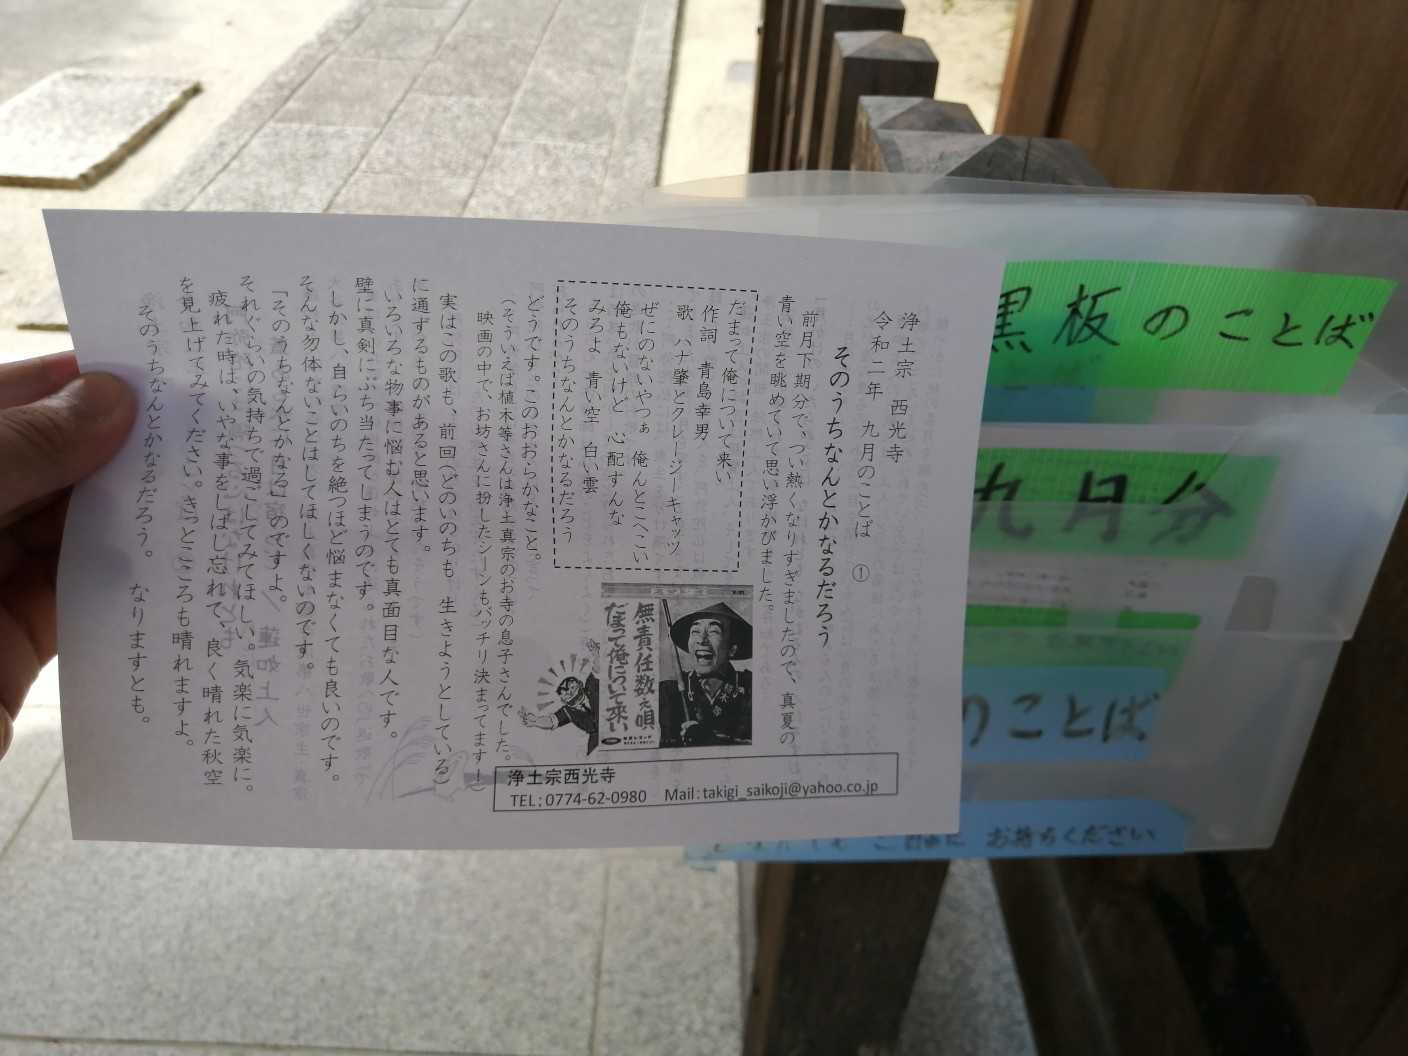 浄土宗 西光寺
令和二年 九月のことば ①
そのうちなんとかなるだろう
前月下期分で、つい熱くなりすぎましたので、真夏の
青い空を眺めていて思い浮かびました。
だまって俺について来い
作詞 青島幸男
歌 ハナ肇とクレージーキャッツ
ぜにのないやつぁ 俺んとこへこい
俺もないけど 心配すんな
みろよ 青い空 白い雲
そのうちなんとかなるだろう
どうです。このおおらかなこと。
(そういえば植木等さんは浄土真宗のお寺の息子さんでした。
映画の中で、お坊さんに扮したシーンもバッチリ決まってます!)
実はこの歌も、前回(どのいのちも 生きようとしている)
に通ずるものがあると思います。
いろいろな物事に悩む人はとても真面目な人です。
壁に真剣にぶち当たってしまうのです。
しかし、自らいのちを絶つほど悩まなくても良いのです。
そんな勿体ないことはしてほしくないのです。
「そのうちなんとかなる」のですよ。
それぐらいの気持ちで過ごしてみてほしい。気楽に気楽に。
疲れた時は、いやな事をしばし忘れて、良く晴れた秋空
を見上げてみてください。きっとこころも晴れますよ。
そのうちなんとかなるだろう。 なりますとも。
無責任数え唄
だまって俺について来い
浄土宗西光寺
TEL:0774-62-0980 Mail:takigi_saikoji@yahoo.co.jp
黒板のことば
九月分
のことば
お持ちください